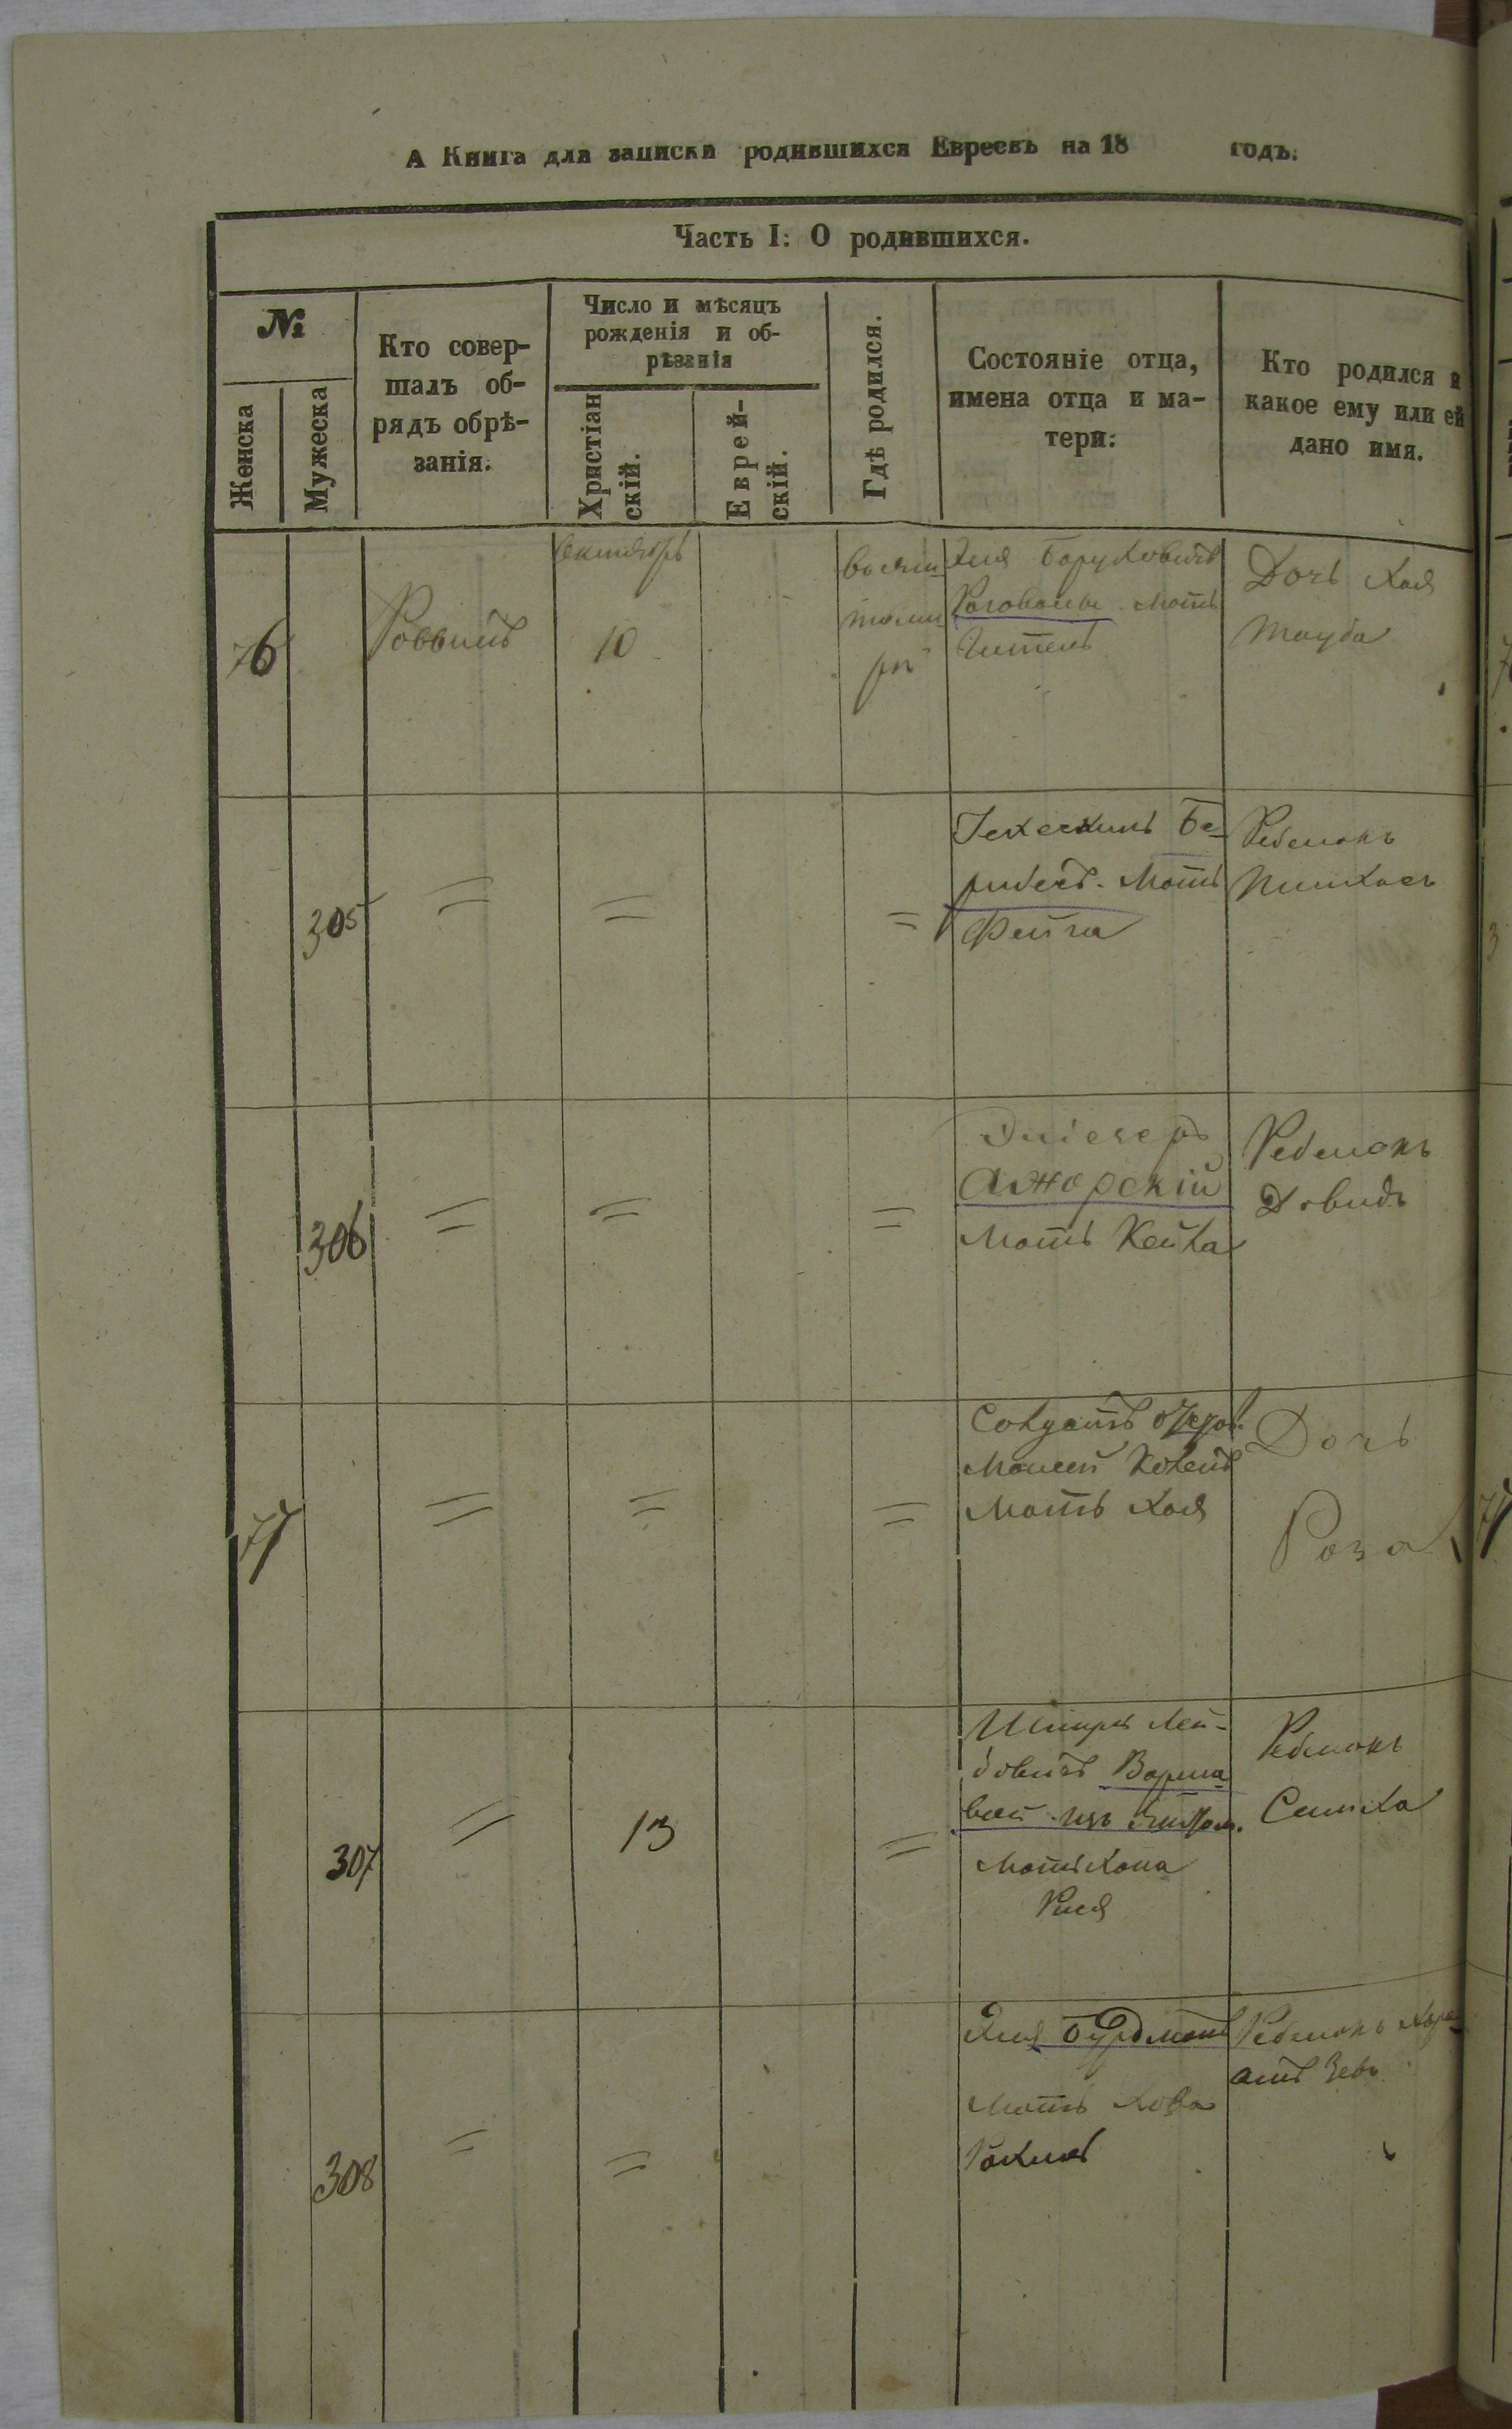 А Книга для записки родившихся Евреевъ на 18 годъ.
Часть I: О родившихся.
№
Женска
Мужеска
Кто совер-
шалъ об-
рядъ обрѣ-
занія.
Число и мѣсяцъ
рожденія и об-
рѣзанія
Христіан
скій.
Еврей-
скій.
Гдѣ родился.
Состояніе отца,
имена отца и ма-
тери:
Кто родился и
какое ему или ей
дано имя.
76
Раввинъ
Сентябрь
10
въ Жи
томи
рѣ
Эля Боруховичъ
Мать
Гителъ
Дочь Хая
Тауба
305
=
=
=
Іехескиль Бе-
Мать
Фейга
Ребенокъ
Пинхасъ
306
=
=
=
Эліезеръ
Ажорскій
Мать Кейла
Ребенокъ
Довидъ
77
=
=
=
Солдатъ
Моисей Коганъ
Мать Хая
Дочь
Роза
307
=
13
=
Шмиръ Лей-
бовичъВарша
изъ
Мать Хана
Рися
Ребенокъ
Симха
308
=
=
Эля Бурдманъ
Мать Хова
Рахиль
Ребенокъ
Зевъ